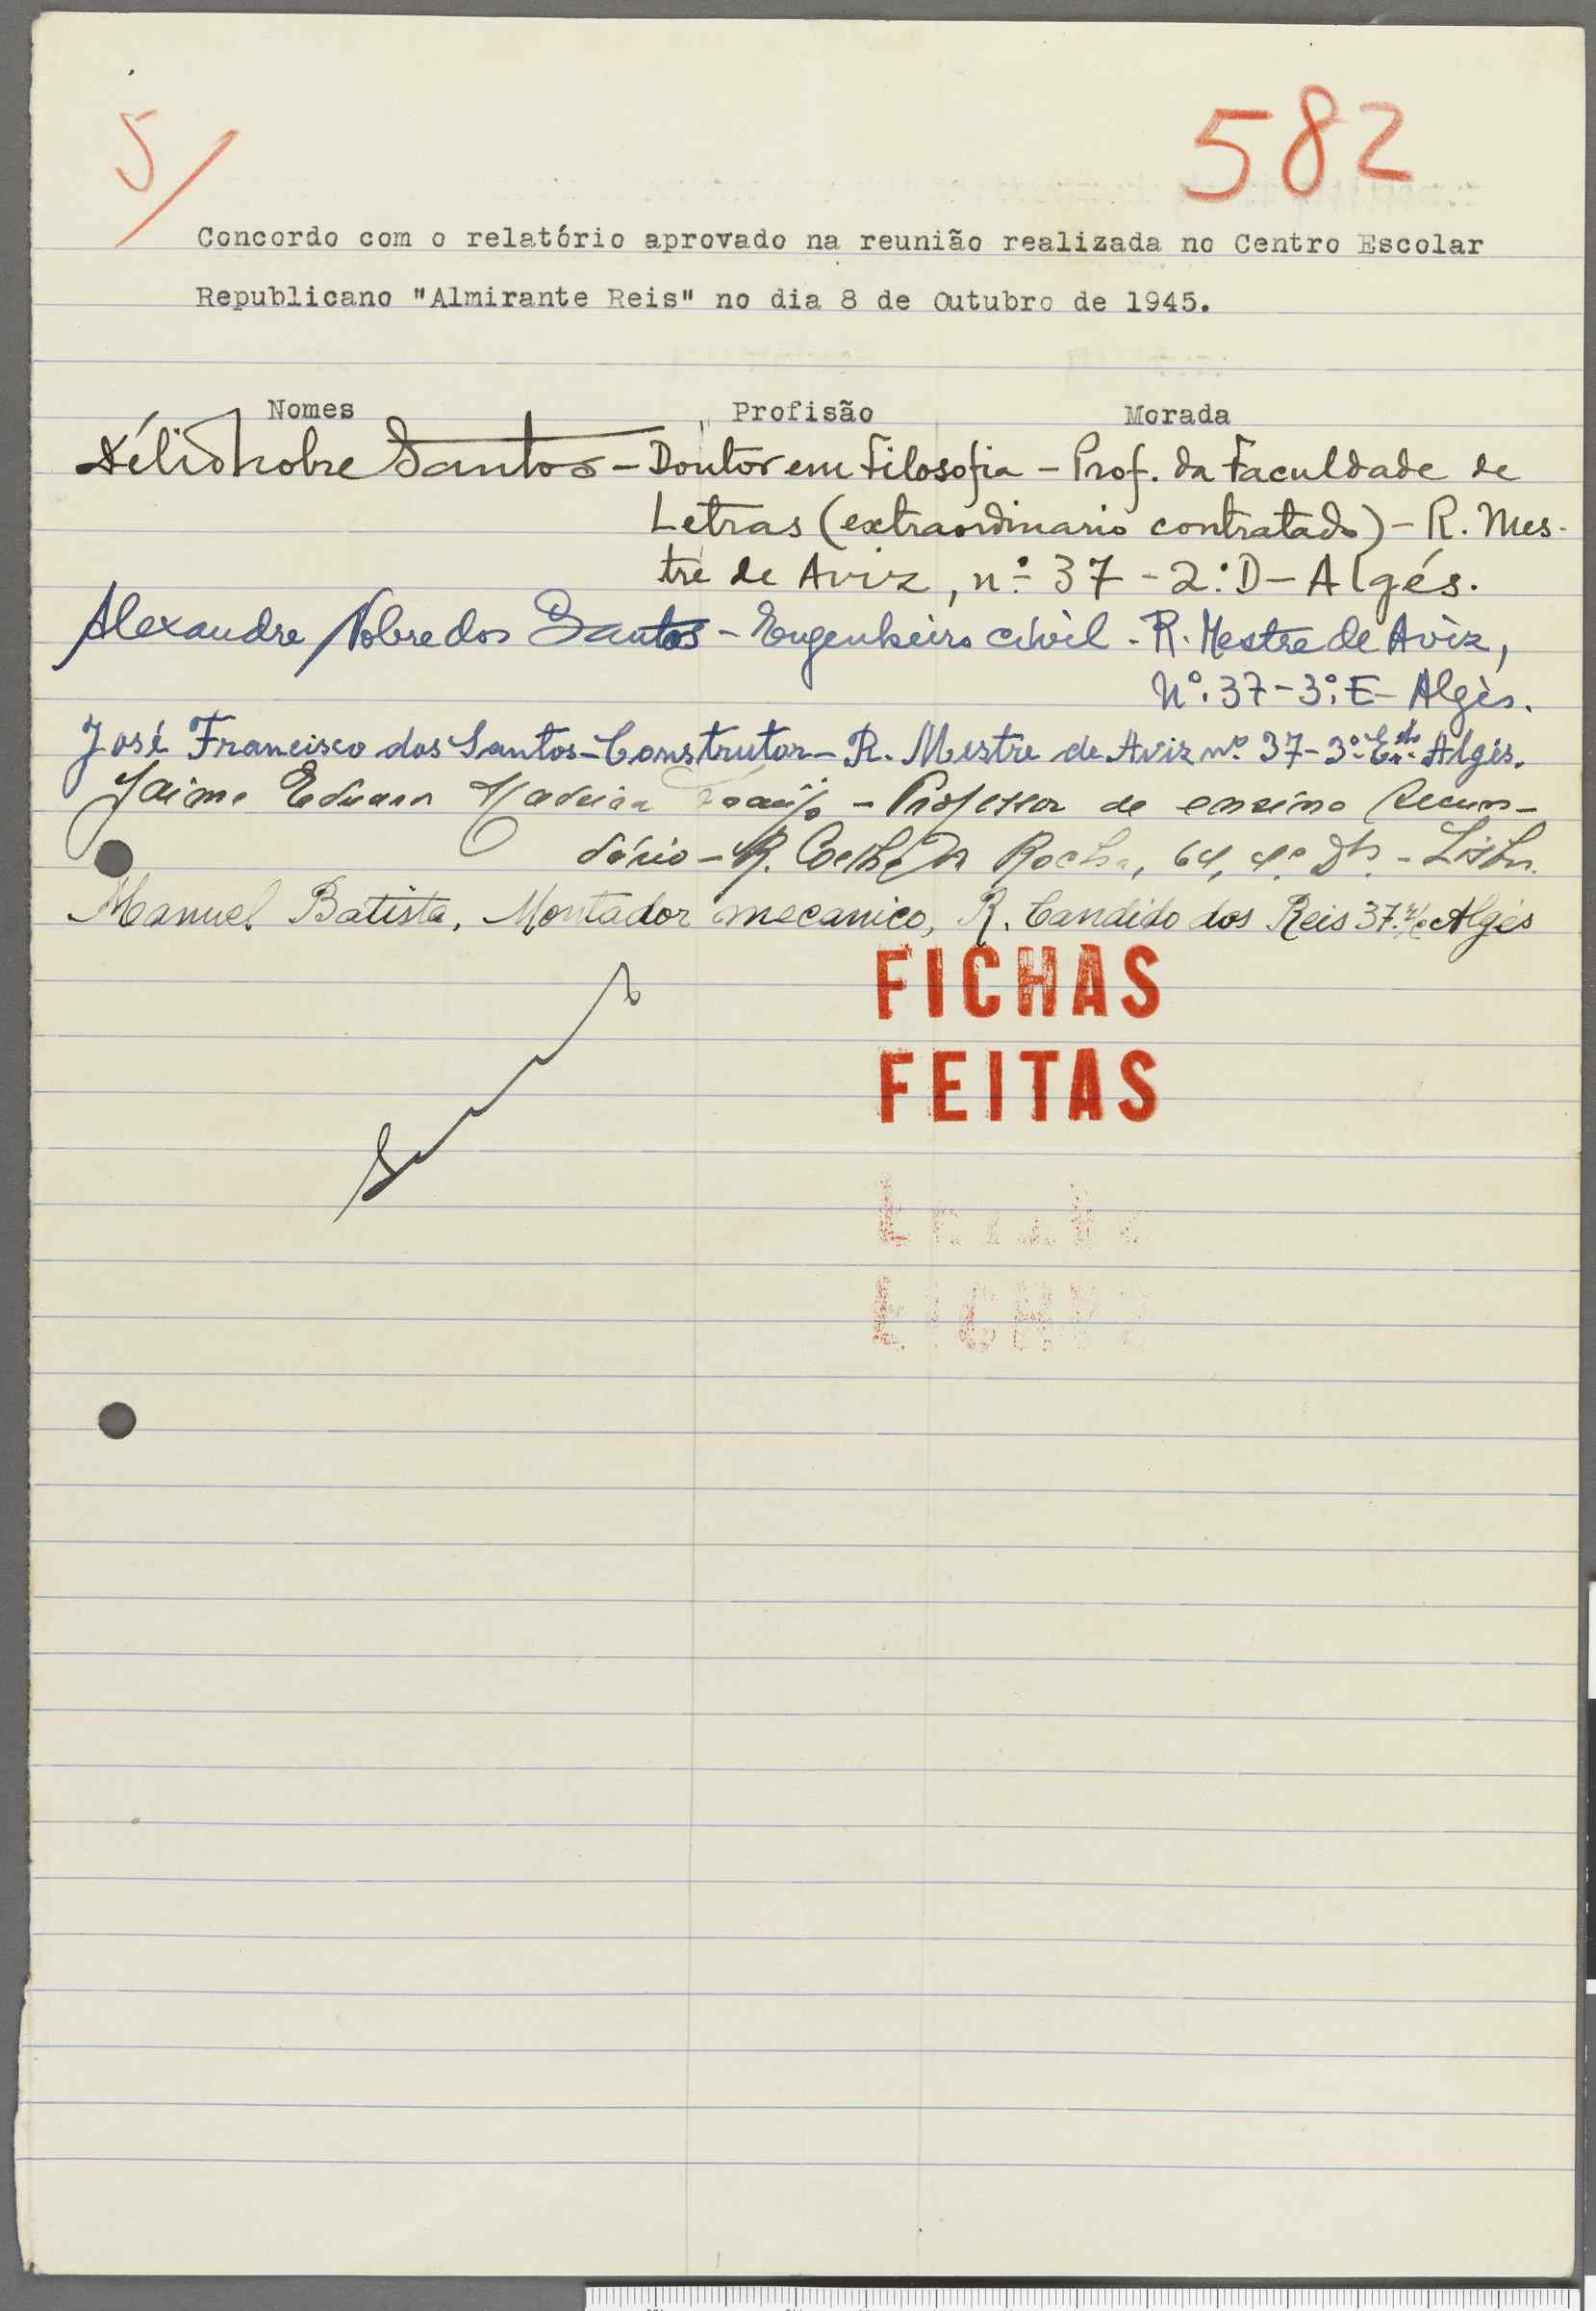 5/
582
Concordo com o relatório aprovado na reunião realizada no Centro Escolar
Republicano "Almirante Reis" no dia 8 de Outubro de 1945.
Nomes Profisão Morada
Délio Nobre Santos - Doutor em Filosofia - Prof. da Faculdade de
Letras (extraordinario contratado) - R. Mes-
tre de Aviz, n.º 37 - 2.º D - Algés.
Alexandre Nobre dos Santos - Engenheiro civil - R. Mestre de Aviz,
Nº. 37 - 3º. E - Algés.
José Francisco dos Santos - Construtor - R. Mestre de Aviz nº 37 - 3º Algés.
Jaime Eduardo Madeira Araújo - Professor de ensino secun-
dário - R. Coelho da Rocha, 64, 4.º Dto. - Lisboa.
Manuel Batista, Montador mecanico, R. Candido dos Reis 37. r/c Algés
FICHAS
FEITAS